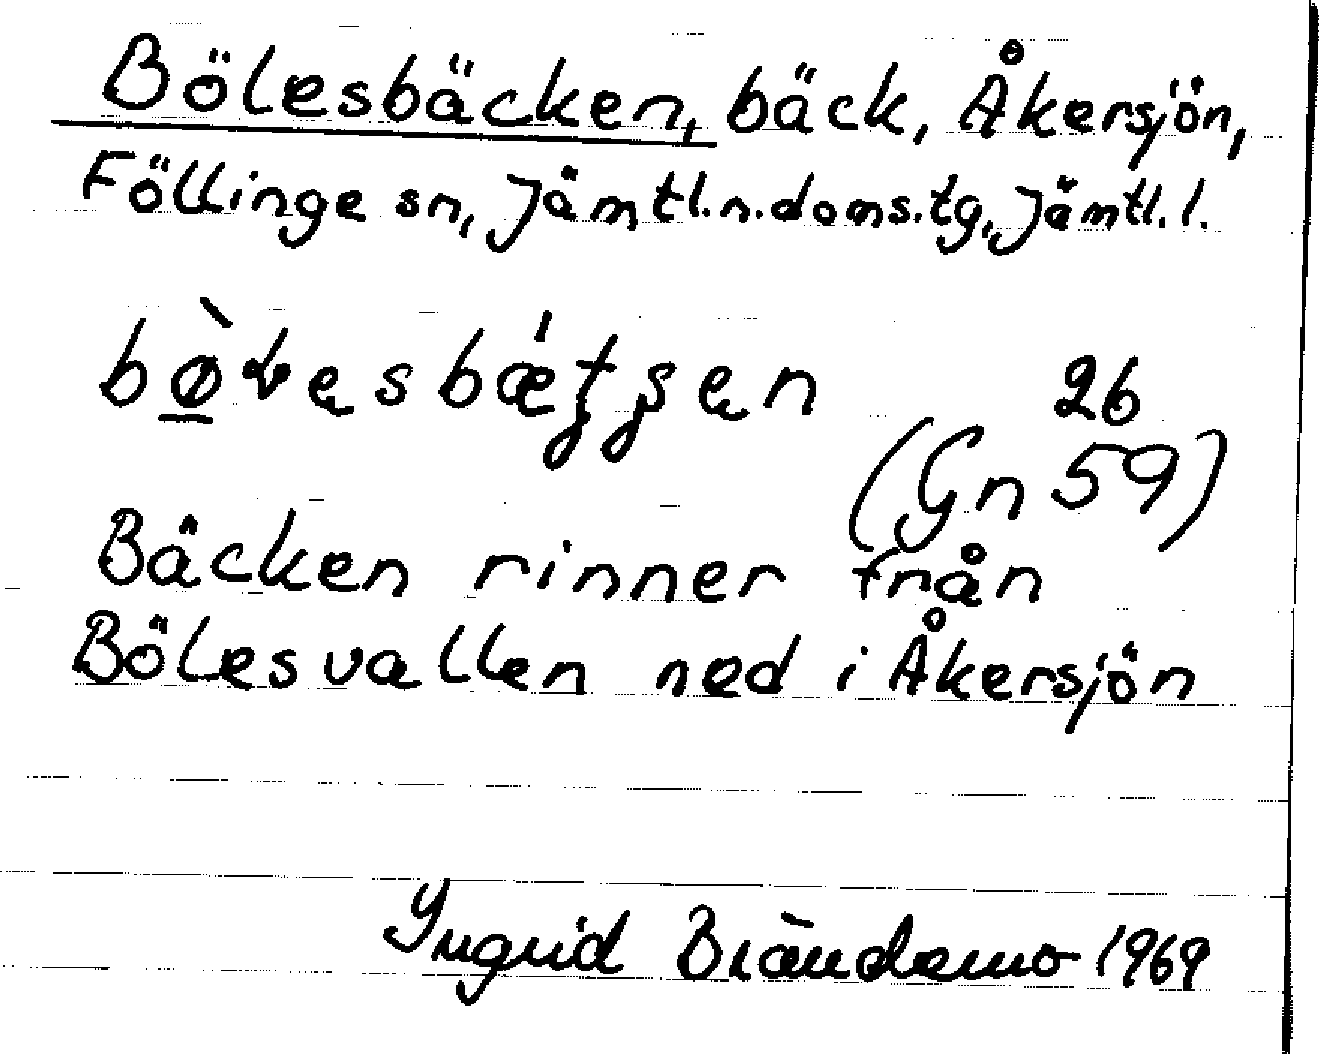 Bölesbäcken, bäck, Åkersjön,
Föllinge sn, Jämtl.n.doms.tg, Jämtl.l.
26
(Gn 59)
Bäcken rinner från
Bölesvallen ned i Åkersjön
Ingrid Brändemo 1969